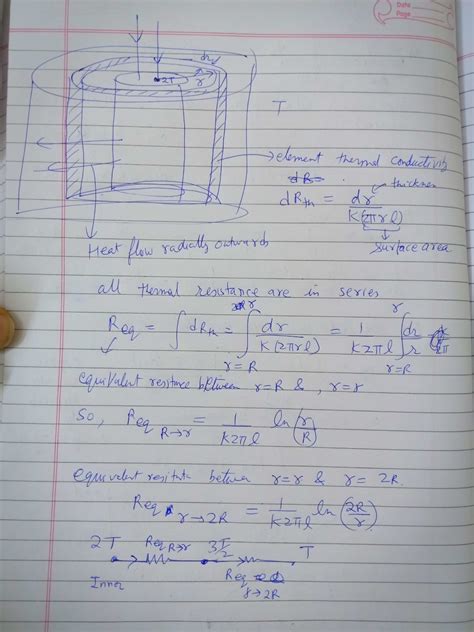 Date
Page
dr
2T
r
T
element thermal conductivity
dRth = dr / K(2πrl)
thickness
surface area
Heat flow radially outwards
all thermal resistance are in series
Req = ∫ dRth = ∫_{r=R}^{r} dr / K(2πrl) = 1 / K2πl ∫_{r=R}^{r} dr / r
equivalent resitance between r=R & , r=r
So, Req R→r = 1 / K2πl ln(r/R)
equivalent resitance between r=r & r=2R.
Req r→2R = 1 / K2πl ln(2R/r)
2T Req R→r 3T/2 T
Inner Req r→2R